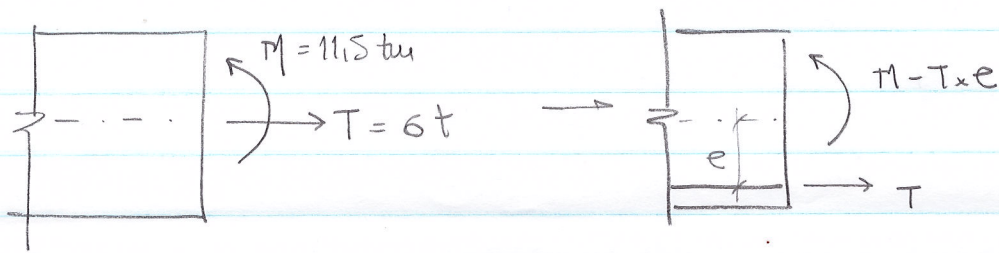 M = 11,5 tm
T = 6 t
M - T x e
e
T